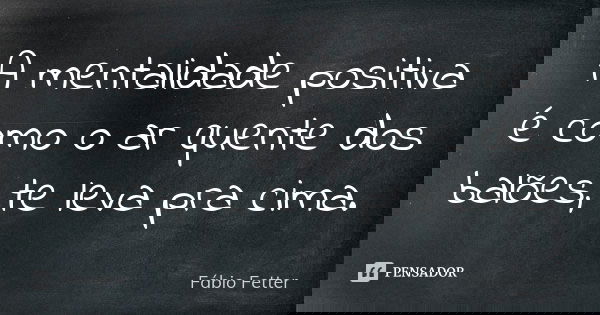 A mentalidade positiva
é como o ar quente dos
balões, te leva pra cima.
PENSADOR
Fábio Fetter